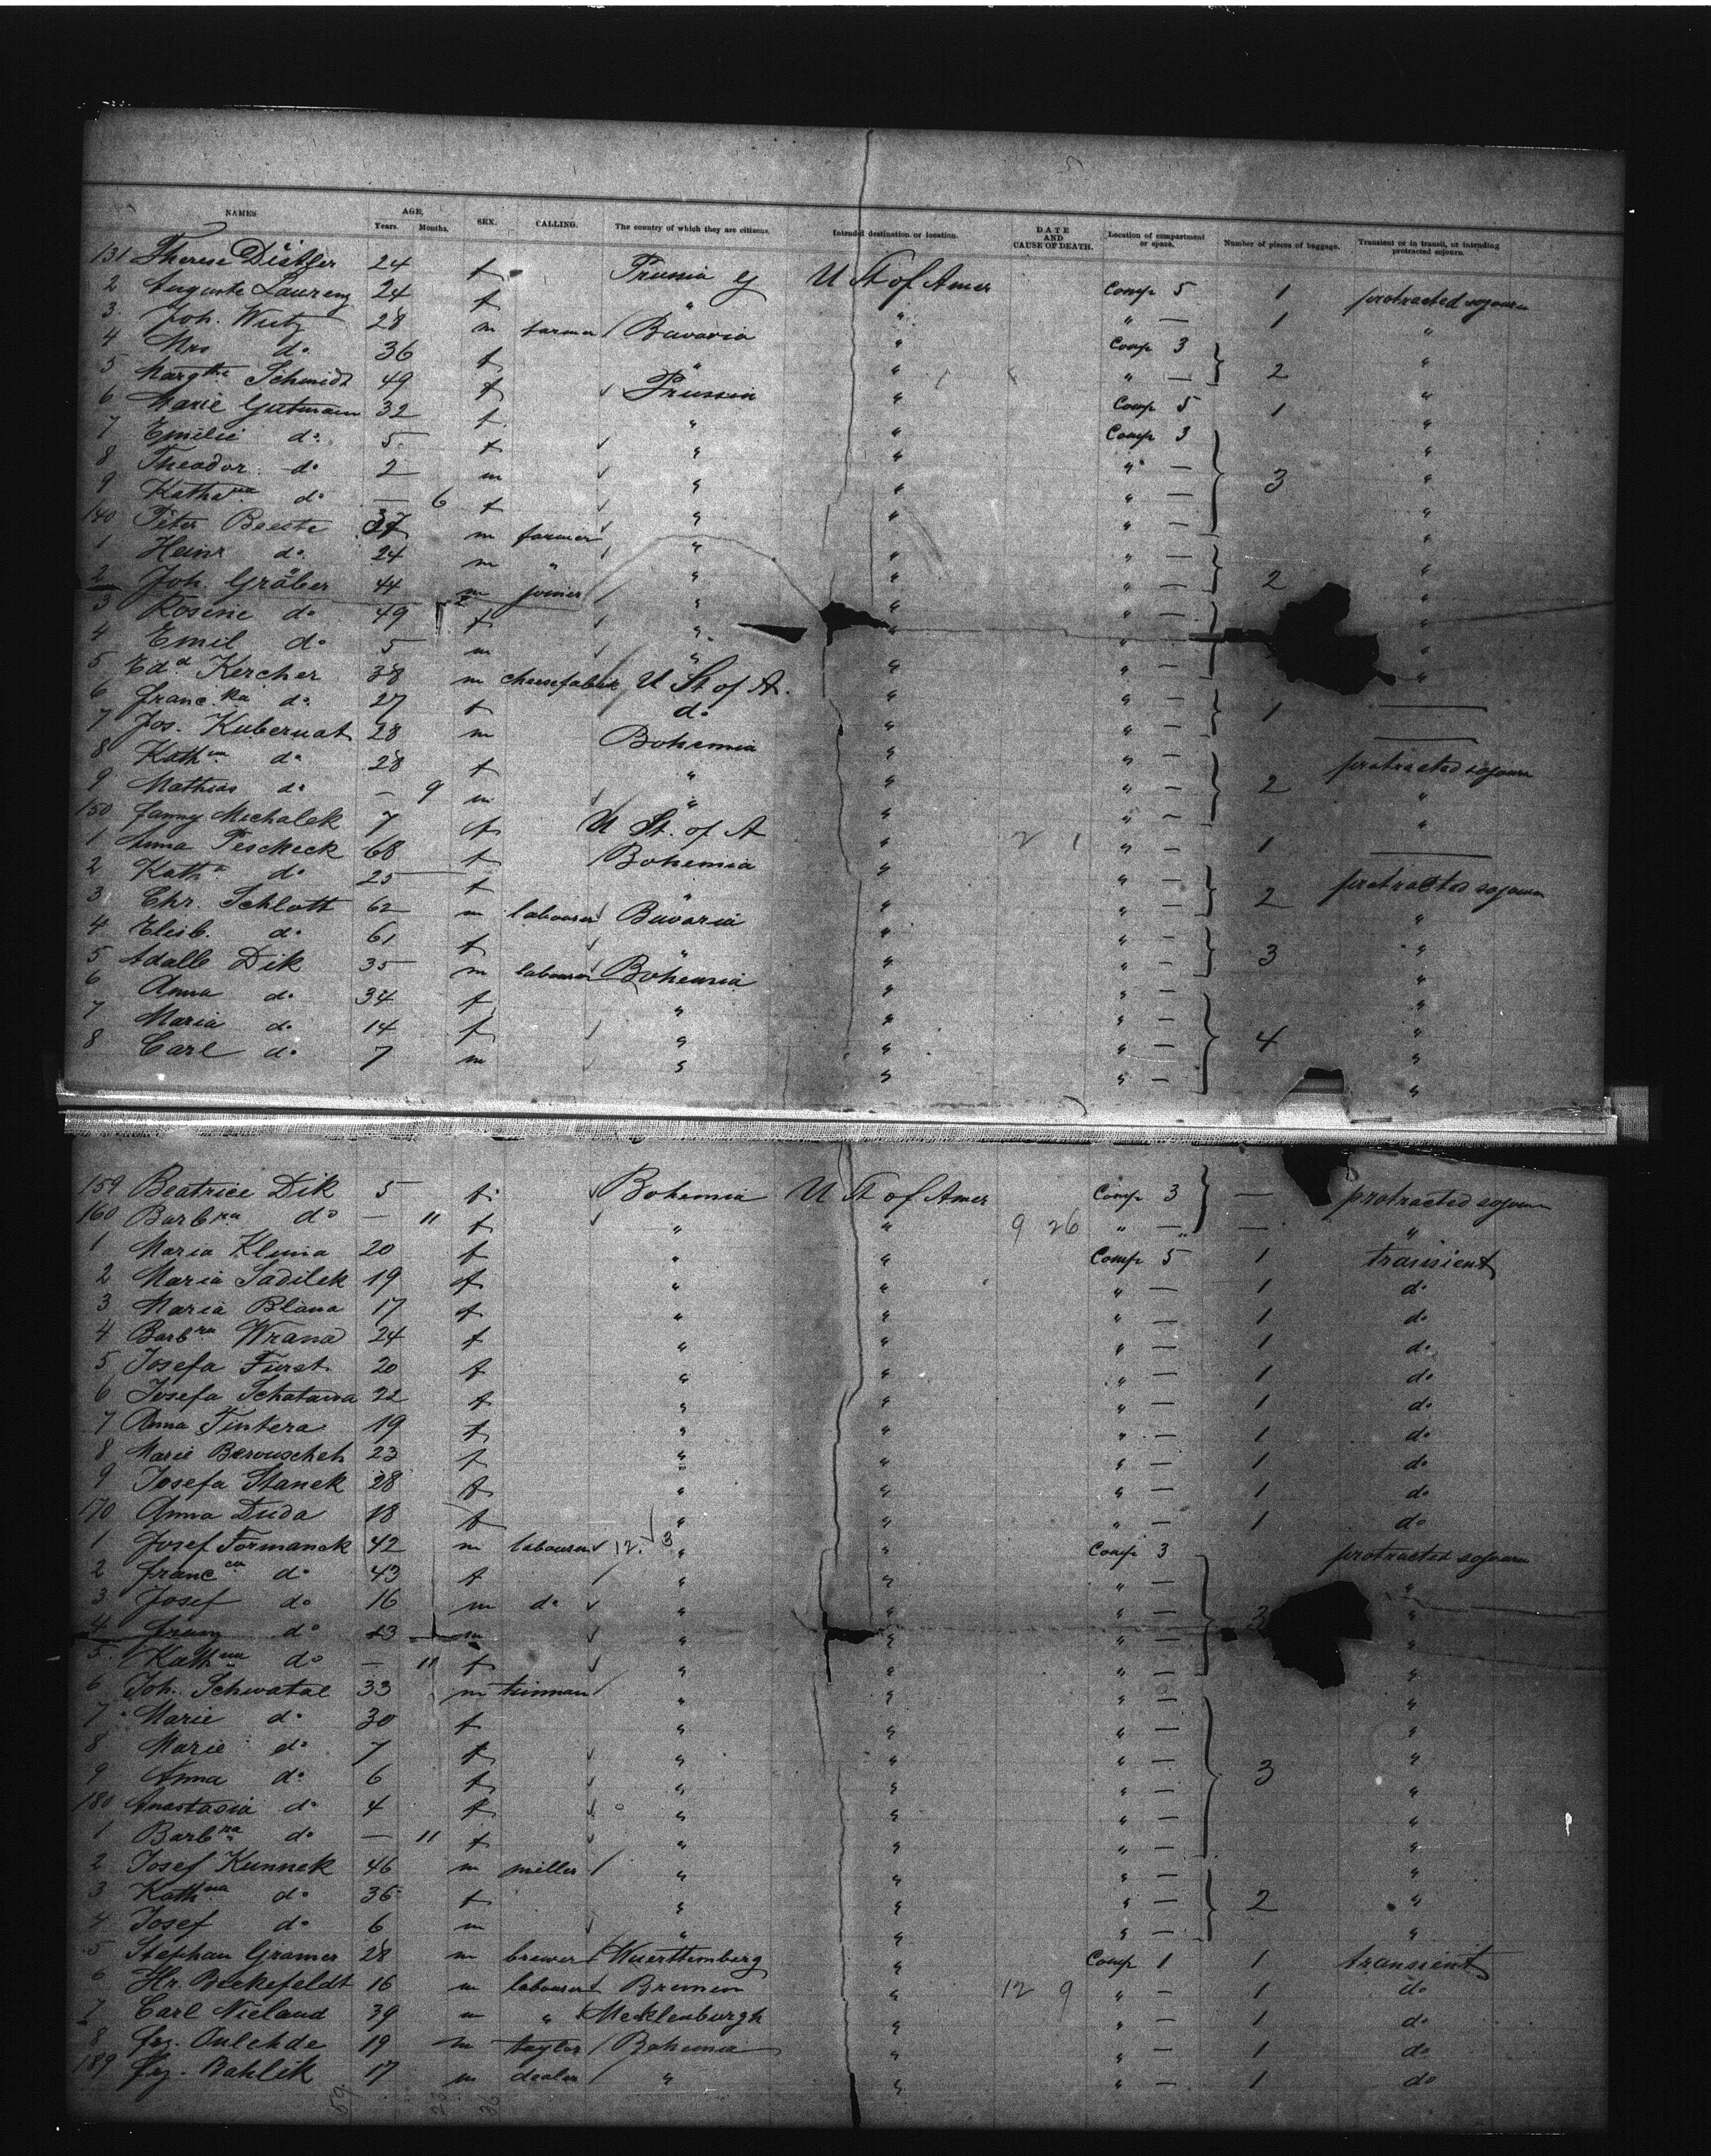 NAMES AGE, Years. Months. SEX. CALLING. The country of which they are citizens. Intended destination or location. DATE AND CAUSE OF DEATH. Location of compartment or space. Number of pieces of baggage. Transient or in transit, or intending protracted sojourn.
131 Therese Distler 24 f Prussia U St of Amer Comp 5 1 protracted sojourn
2 Auguste Laurenz 24 f " " " — 1 "
3 Joh. Wutz 28 m farmer Bavaria " Comp 3 2 "
4 Mrs do 36 f " " " — "
5 Margthe Schmidt 49 f Prussia " Comp 5 1 "
6 Marie Gutmann 32 f " " Comp 3 3 "
7 Emilie do 5 f " " " — "
8 Theodor do 2 m " " " — "
9 Kathena do — 6 f " " " — "
140 Peter Beeste 37 m farmer " " " — 2 "
1 Heinr do 24 m " " " " — "
2 Joh. Gräber 44 m joiner " " " — "
3 Rosine do 49 f " " " — "
4 Emil do 5 m " " " — "
5 Edd Kercher 38 m U St of A. " " — 1 —
6 Francka do 27 f do " " — —
7 Jos. Kubernat 28 m Bohemia " " — 2 protracted sojourn
8 Kathna do 28 f " " " — "
9 Mathias do — 9 m " " " — "
150 Fanny Michalek 7 f U St. of A " 2 1 " — 1 —
1 Anna Pescheck 68 f Bohemia " " — 2 protracted sojourn
2 Katha do 25 f " " " — "
3 Chr. Schlott 62 m labourer Bavaria " " — 3 "
4 Elisb. do 61 f " " " — "
5 Adalb Dik 35 m labourer Bohemia " " — 4 "
6 Anna do 34 f " " " — "
7 Maria do 14 f " " " — "
8 Carl do 7 m " " " — "
159 Beatrice Dik 5 f Bohemia U St of Amer Comp 3 — protracted sojourn
160 Barbra do — 11 f " " 9 26 " — — "
1 Maria Klima 20 f " " Comp 5 1 transient
2 Maria Sadilek 19 f " " " — 1 do
3 Maria Blana 17 f " " " — 1 do
4 Barbra Wrana 24 f " " " — 1 do
5 Josefa Furst 20 f " " " — 1 do
6 Josefa Schatawa 22 f " " " — 1 do
7 Anna Tintera 19 f " " " — 1 do
8 Marie Berouschek 23 f " " " — 1 do
9 Josefa Stanek 28 f " " " — 1 do
170 Anna Duda 18 f " " " — 1 do
1 Josef Formanek 42 m labourer 12. 3 " " Comp 3 3 protracted sojourn
2 Francca do 43 f " " " — "
3 Josef do 16 m do " " " — "
4 Franz do m " " " — "
5 Kathna do — 11 f " " " — "
6 Joh. Schwatal 33 m tinman " " " — 3 "
7 Marie do 30 f " " " — "
8 Marie do 7 f " " " — "
9 Anna do 6 f " " " — "
180 Anastasia do 4 f " " " — "
1 Barbra do — 11 f " " " — "
2 Josef Kunnek 46 m miller " " " — 2 "
3 Kathna do 36 f " " " — "
4 Josef do 6 m " " " — "
5 Stephan Gramer 28 m brewer Wuerttemberg " Comp 1 1 transient
6 Hr. Beckefeldt 16 m labourer Bremen " 12 9 " — 1 do
7 Carl Nieland 39 m " Mecklenburgh " " — 1 do
8 Fz. Oulehde 19 m taylor Bohemia " " — 1 do
189 Fz. Bahlik 17 m dealer " " " — 1 do
59 23 36